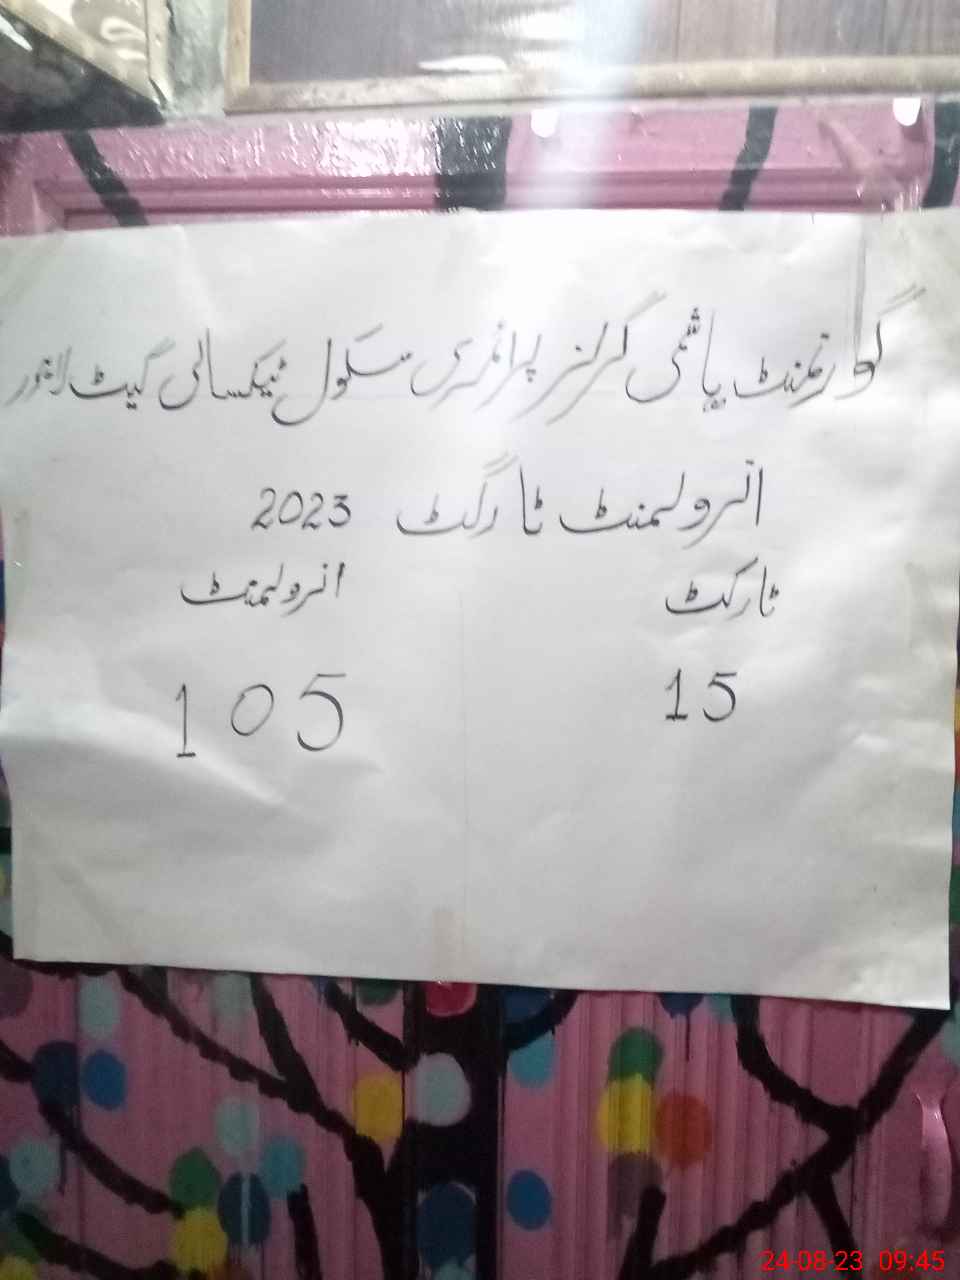 گورنمنٹ ہاشمی گرلز پرائمری سکول ٹیکسالی گیٹ لاہور
انرولمنٹ ٹارگٹ 2023
ٹارگٹ انرولمنٹ
15 105
24-08-23 09:45